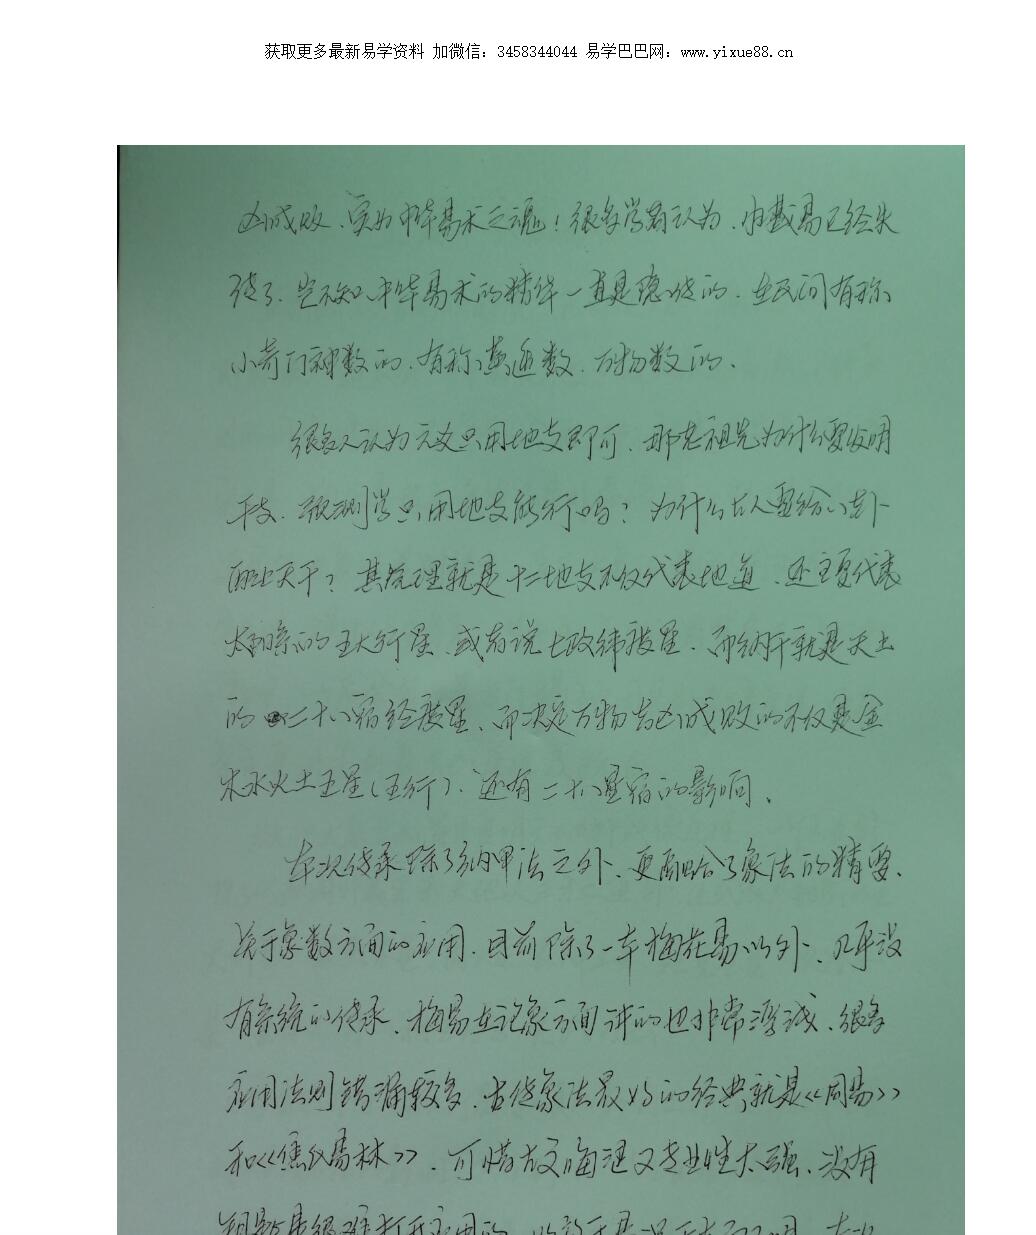 获取更多最新易学资料 加微信：3458344044 易学巴巴网：www.yixue88.cn
凶成败、实为中华易术之魂！很多学者认为、巾戴易已经失
传了、岂不知、中华易术的精华一直是隐传的、在民间有称
小奇门神数的、有称黄道数、万物数的、
很多人认为六爻只用地支即可、那老祖先为什么要发明
干支、预测学只用地支能行吗？为什么古人要给八卦
配上天干？其究理就是十二地支不仅代表地道、还主要代表
太阳系的五大行星、或者说七政纬度星、而纳干就是天上
的二十八宿经度星、而决定万物吉凶成败的不仅是金
木水火土五星（五行）、还有二十八星宿的影响、
本次传承除了纳甲法之外、更面给了象法的精要、
关于象数方面的应用、目前除了一本梅花易以外、几乎没
有系统的传承、梅易在论象方面讲的也非常浮浅、很多
应用法则错漏较多、古传象法最好的经典就是《周易》
和《焦氏易林》、可惜古文晦涩又专业性太强、没有